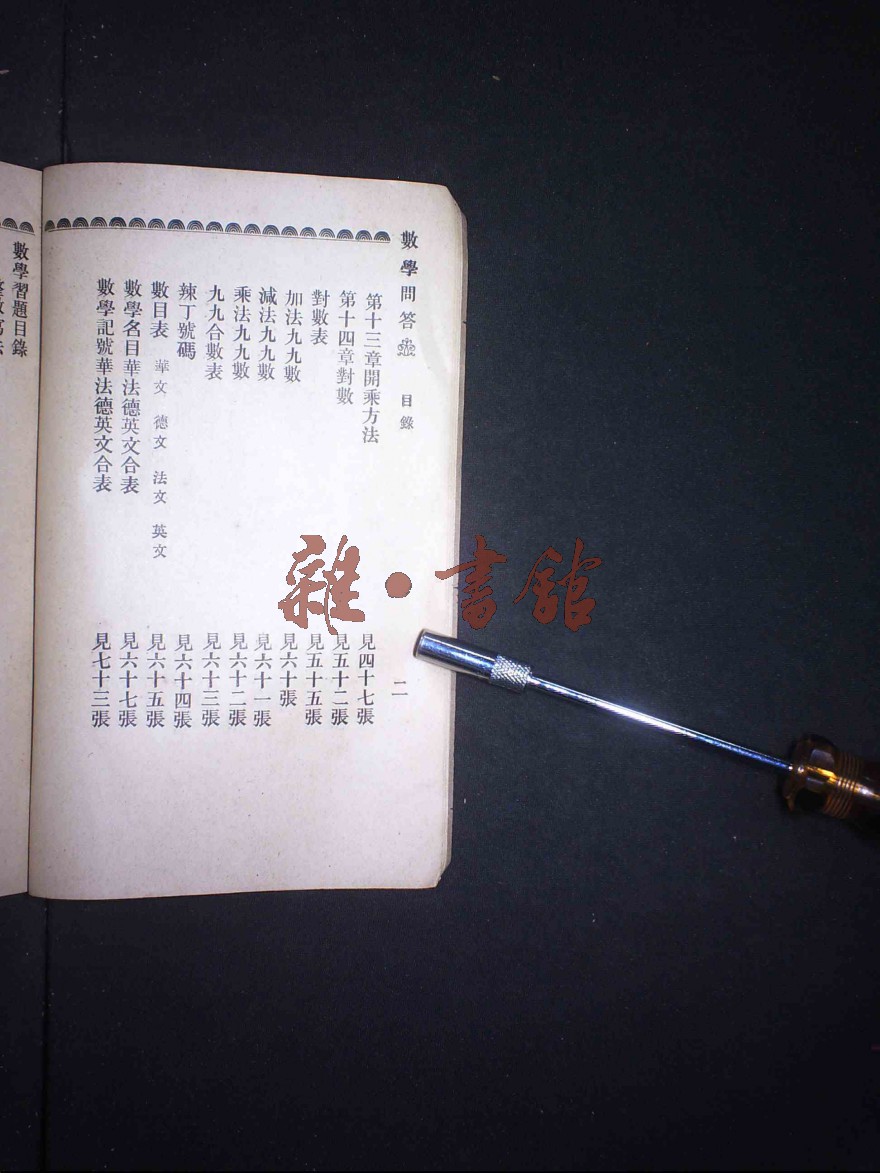 數學問答 目錄 二
第十三章開乘方法 見四十七張
第十四章對數 見五十二張
對數表 見五十五張
加法九九數 見六十張
減法九九數 見六十一張
乘法九九數 見六十二張
九九合數表 見六十三張
辣丁號碼 見六十四張
數目表 華文 德文 法文 英文 見六十五張
數學名目華法德英文合表 見六十七張
數學記號華法德英文合表 見七十三張
數學習題目錄
雜·書館